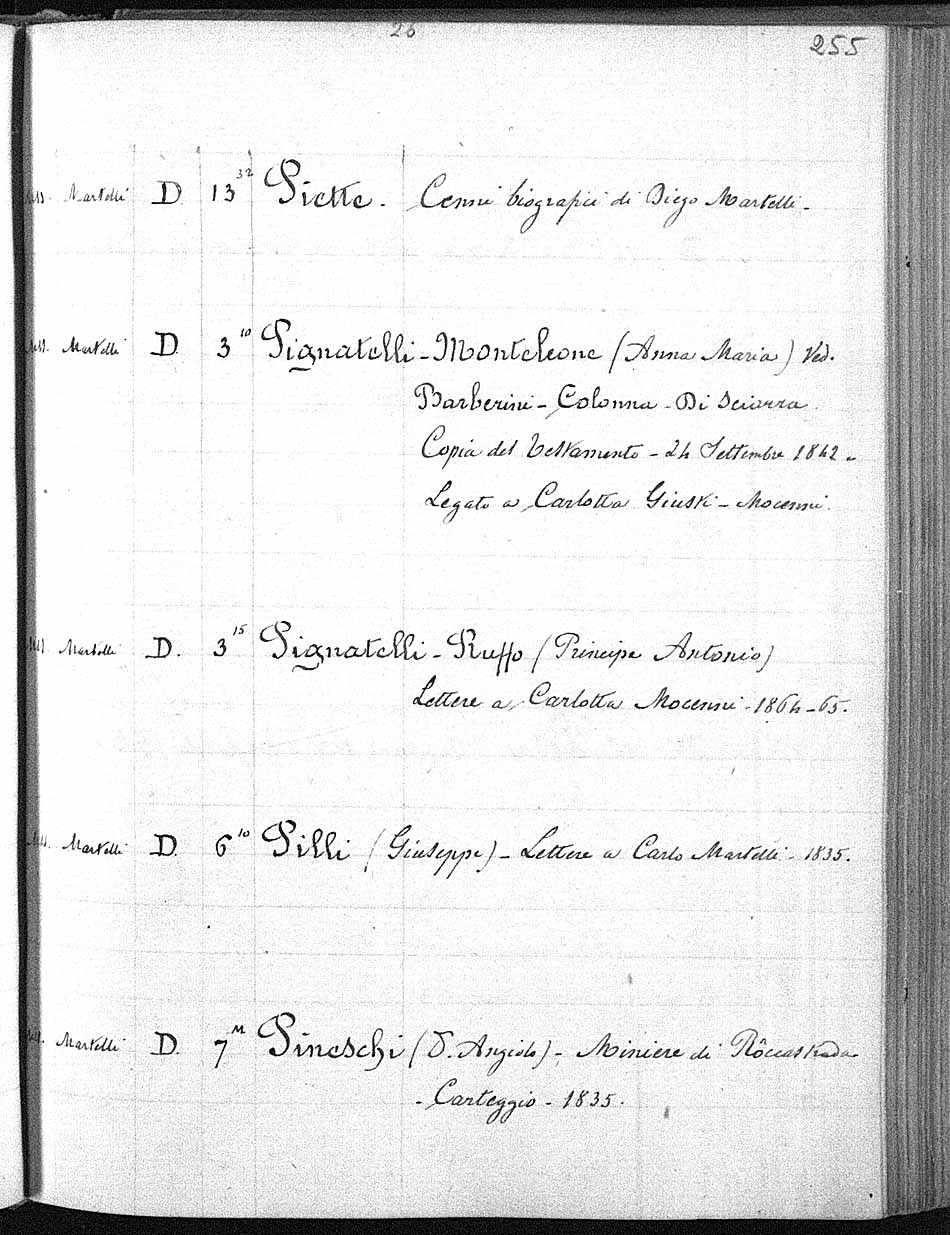 26
255
Mss. Martelli D. 13 32 Piette. - Cenni biografici di Diego Martelli -
Mss. Martelli D. 3 10 Pignatelli - Monteleone (Anna Maria) Ved.
Barberini - Colonna - Di Sciarra
Copia del Testamento - 24 Settembre 1842 -
Legato a Carlotta Giusti - Mocenni.
Mss. Martelli D. 3 15 Pignatelli - Ruffo (Principe Antonio)
Lettere a Carlotta Mocenni - 1864-65.
Mss. Martelli D. 6 10 Pilli (Giuseppe) - Lettere a Carlo Martelli - 1835.
Mss. Martelli D. 7 Pineschi (D. Angiolo) - Miniere di Roccastrada
- Carteggio - 1835.